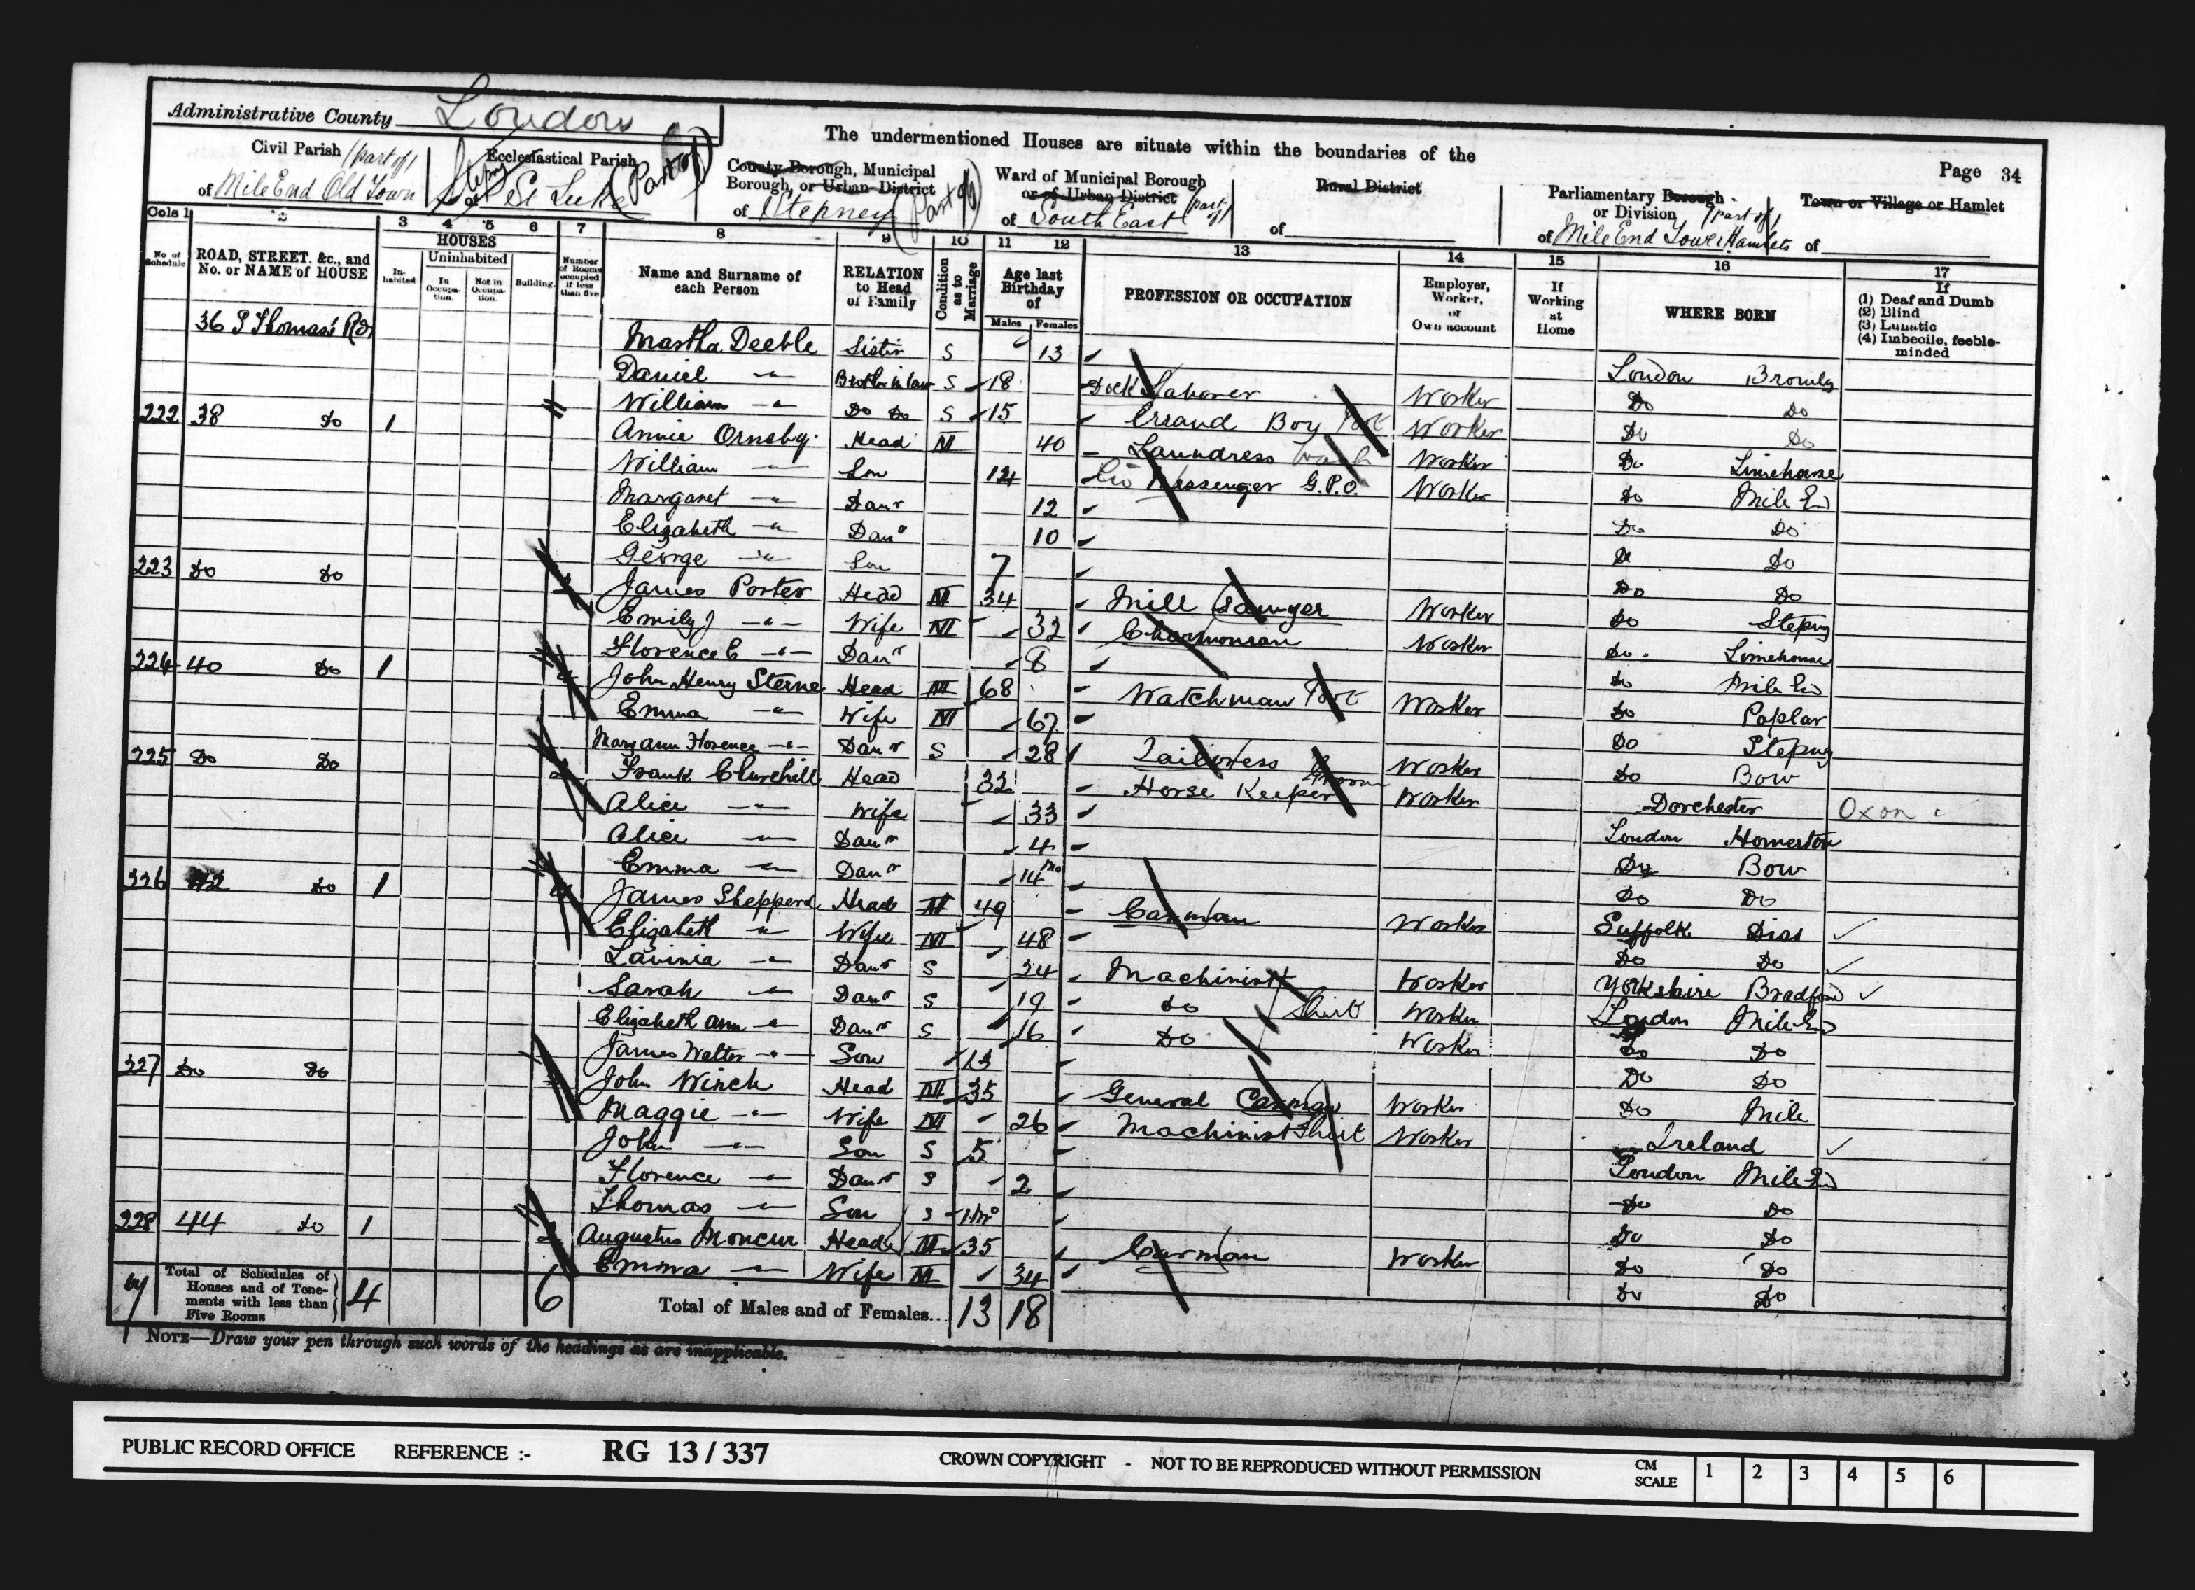 Administrative County London
The undermentioned Houses are situate within the boundaries of the
Page 34
Civil Parish (part of)
of Mile End Old Town
Ecclesiastical Parish
of St Luke (Part of)
County Borough, Municipal
Borough, or Urban District
of Stepney (Part of)
Ward of Municipal Borough
or of Urban District
of South East (part of)
Rural District
of
Parliamentary Borough
or Division (part of)
of Mile End Tower Hamlets
Town or Village or Hamlet
of
Cols 1 2 3 4 5 6 7 8 9 10 11 12 13 14 15 16 17
No of Schedule
ROAD, STREET, &c., and No. or NAME of HOUSE
HOUSES
Inhabited
Uninhabited
In Occupation.
Not in Occupation.
Building.
Number of Rooms occupied if less than five
Name and Surname of each Person
RELATION to Head of Family
Condition as to Marriage
Age last Birthday of
Males Females
PROFESSION OR OCCUPATION
Employer, Worker, or Own account
If Working at Home
WHERE BORN
If
(1) Deaf and Dumb
(2) Blind
(3) Lunatic
(4) Imbecile, feeble-minded
36 S Thomas's Rd Martha Deeble Sister S 13 London Bromley
Daniel Brother in law S 18 Dock Labourer Worker Do Do
William Do Do S 15 Errand Boy Worker Do Do
222 38 Do 1 Annie Ornsby Head M 40 Laundress Wash Worker Do Limehouse
William Son 14 Messenger G.P.O. Worker Do Mile End
Margaret Daur 12 Do Do
Elizabeth Daur 10 Do Do
George Son 7 Do Do
223 Do Do James Porter Head M 34 Mill Sawyer Worker Do Stepney
Emily J Wife M 32 Charwoman Worker Do Limehouse
Florence E Daur 8 Do Mile End
224 40 Do 1 John Henry Sterne Head M 68 Watchman Worker Do Poplar
Emma Wife M 67 Do Stepney
Mary Ann Florence Daur S 28 Tailoress Worker Do Bow
225 Do Do Frank Churchill Head 32 Horse Keeper Groom Worker Dorchester Oxon
Alice Wife 33 London Homerton
Alice Daur 4 Do Bow
Emma Daur 14 mo Do Do
336 42 Do 1 James Shepperd Head M 49 Carman Worker Suffolk Diss
Elizabeth Wife M 48 Do Do
Lavinia Daur S 24 Machinist Worker Yorkshire Bradford
Sarah Daur S 19 Do Shirt Worker London Mile End
Elizabeth Ann Daur S 16 Do Worker Do Do
James Walter Son 13 Do Do
327 Do Do John Winch Head M 35 General Carman Worker Do Mile
Maggie Wife M 26 Machinist Shirt Worker Ireland
John Son S 5 London Mile End
Florence Daur S 2 Do Do
Thomas Son S 1 mo Do Do
228 44 Do 1 Augustus Moncur Head M 35 Carman Worker Do Do
Emma Wife M 34 Do Do
Total of Schedules of Houses and of Tenements with less than Five Rooms 4 6
Total of Males and of Females... 13 18
NOTE—Draw your pen through such words of the headings as are inapplicable.
PUBLIC RECORD OFFICE REFERENCE :- RG 13 / 337 CROWN COPYRIGHT - NOT TO BE REPRODUCED WITHOUT PERMISSION CM SCALE 1 2 3 4 5 6